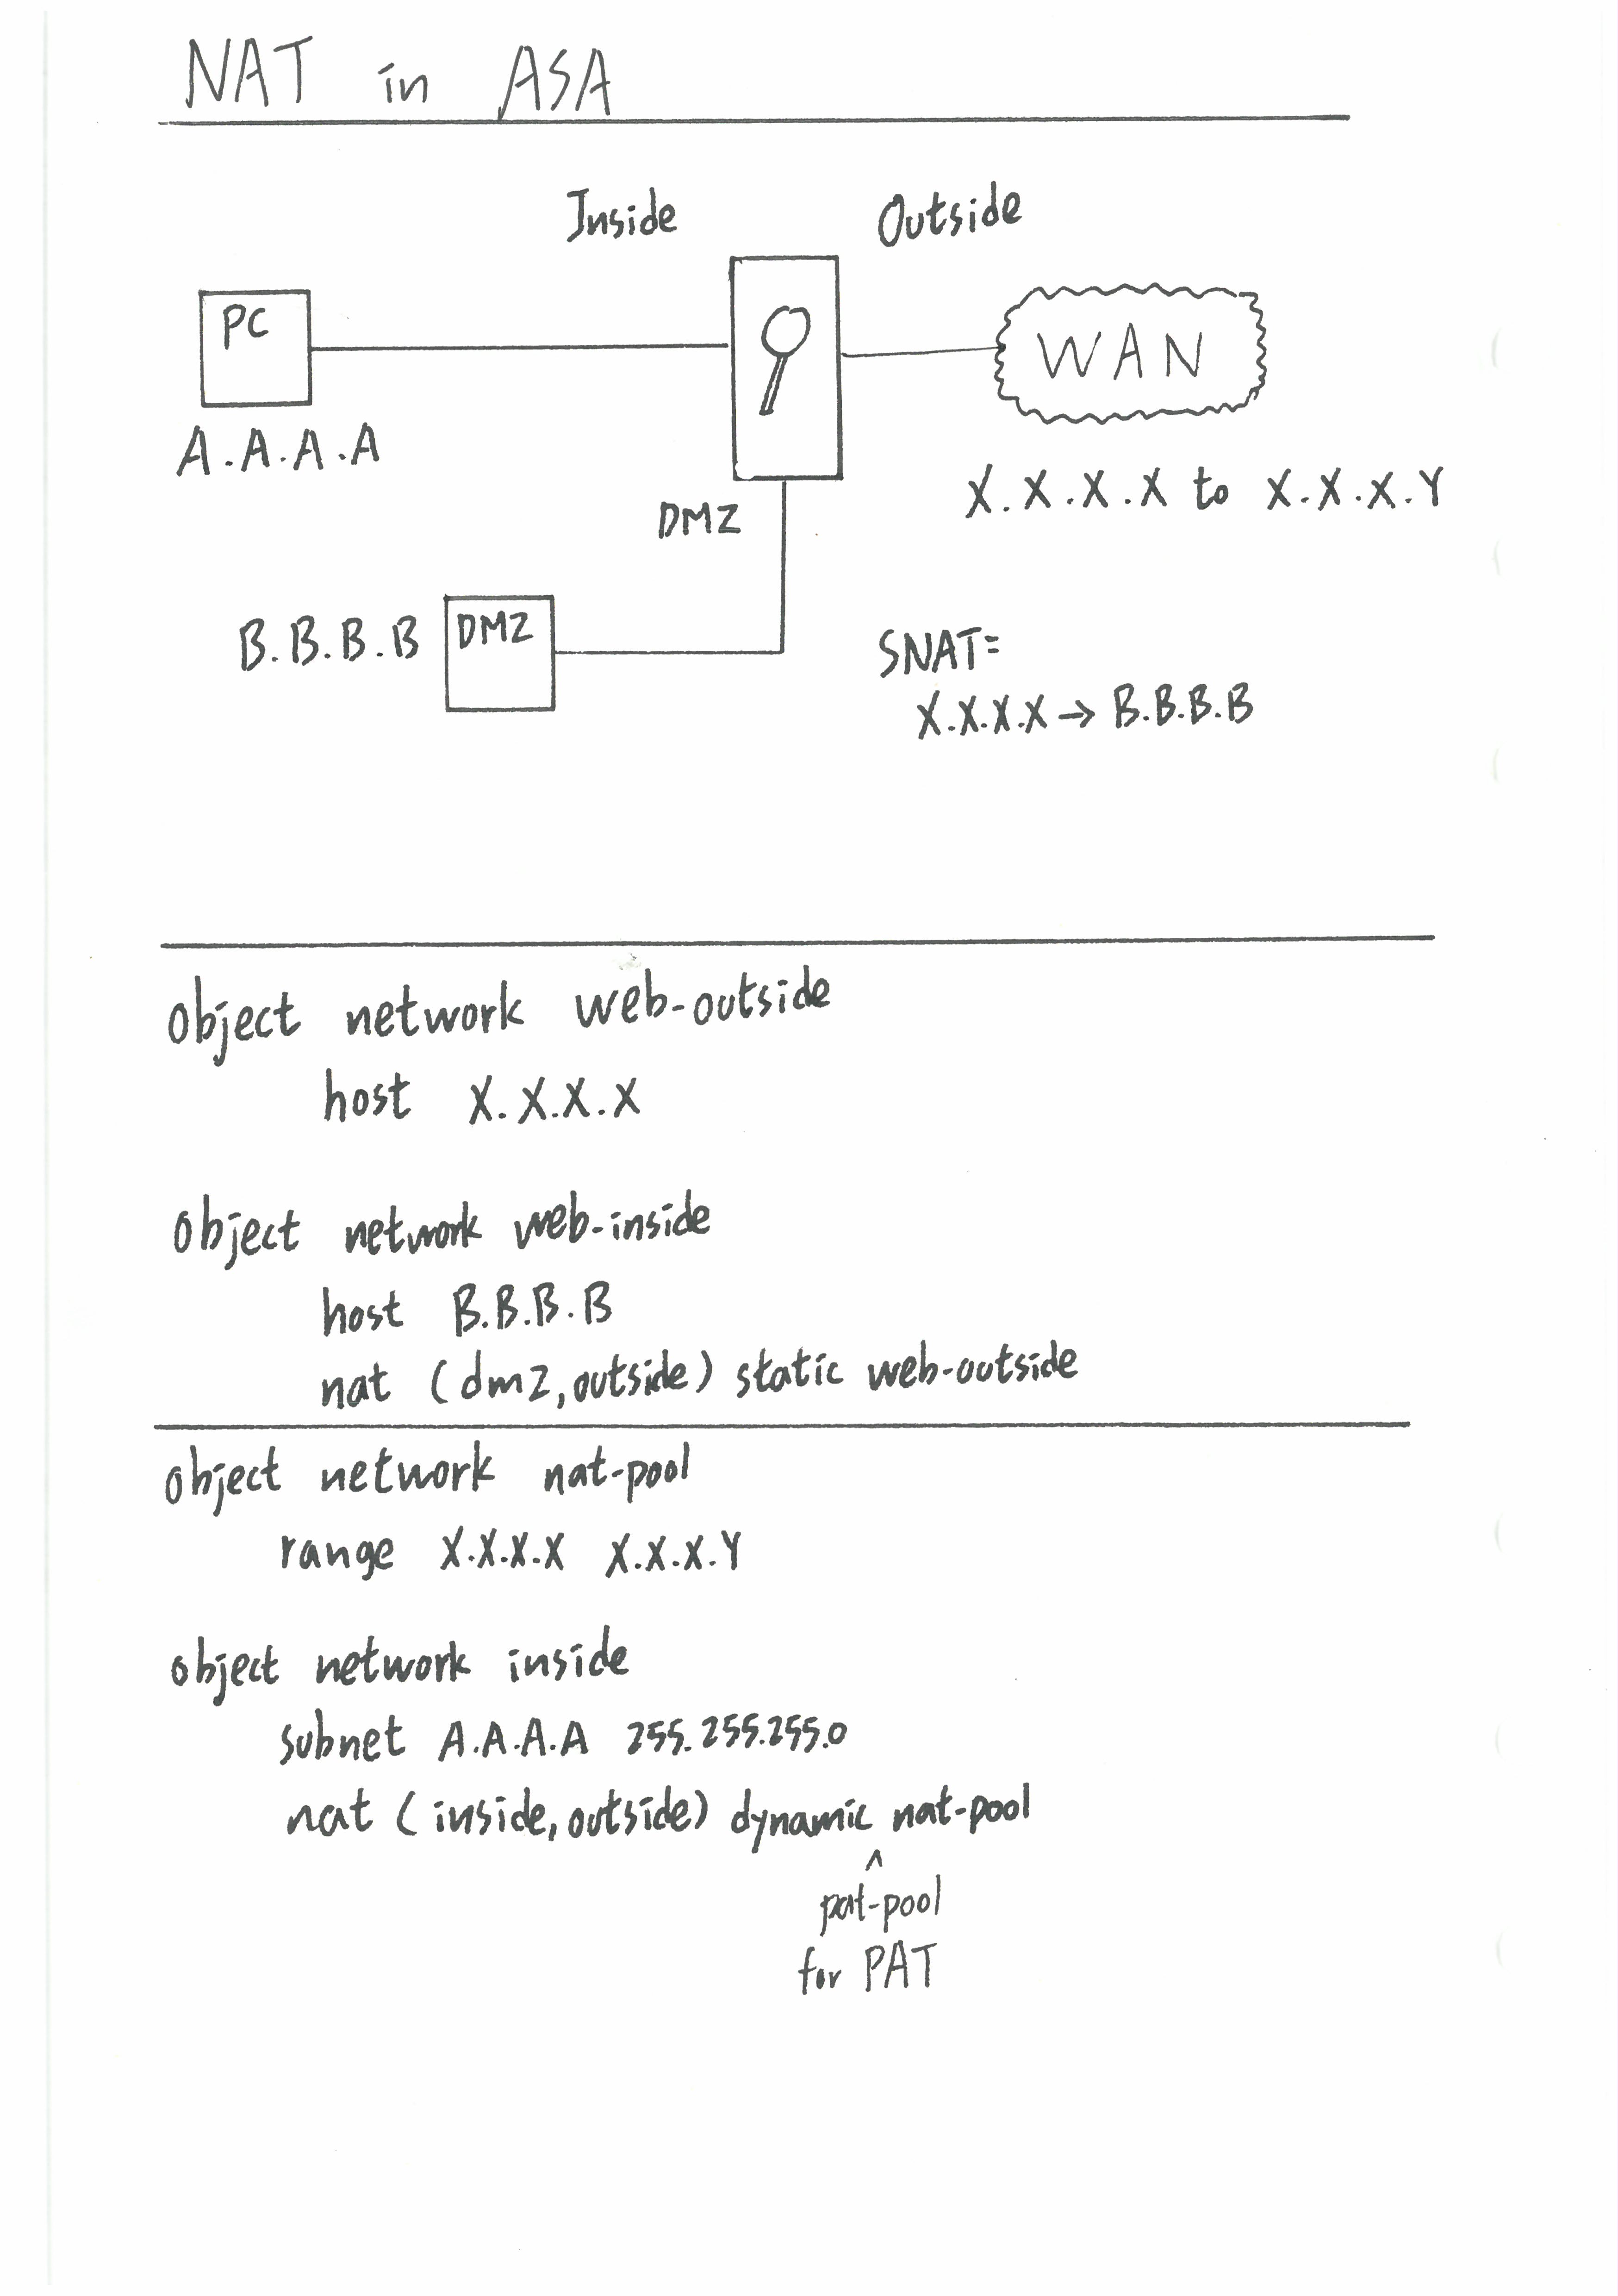 NAT in ASA
Inside Outside
PC
WAN
A.A.A.A
X.X.X.X to X.X.X.Y
DMZ
B.B.B.B DMZ
SNAT=
X.X.X.X → B.B.B.B
object network web-outside
host X.X.X.X
object network web-inside
host B.B.B.B
nat (dmz,outside) static web-outside
object network nat-pool
range X.X.X.X X.X.X.Y
object network inside
subnet A.A.A.A 255.255.255.0
nat (inside,outside) dynamic nat-pool
^
pat-pool
for PAT